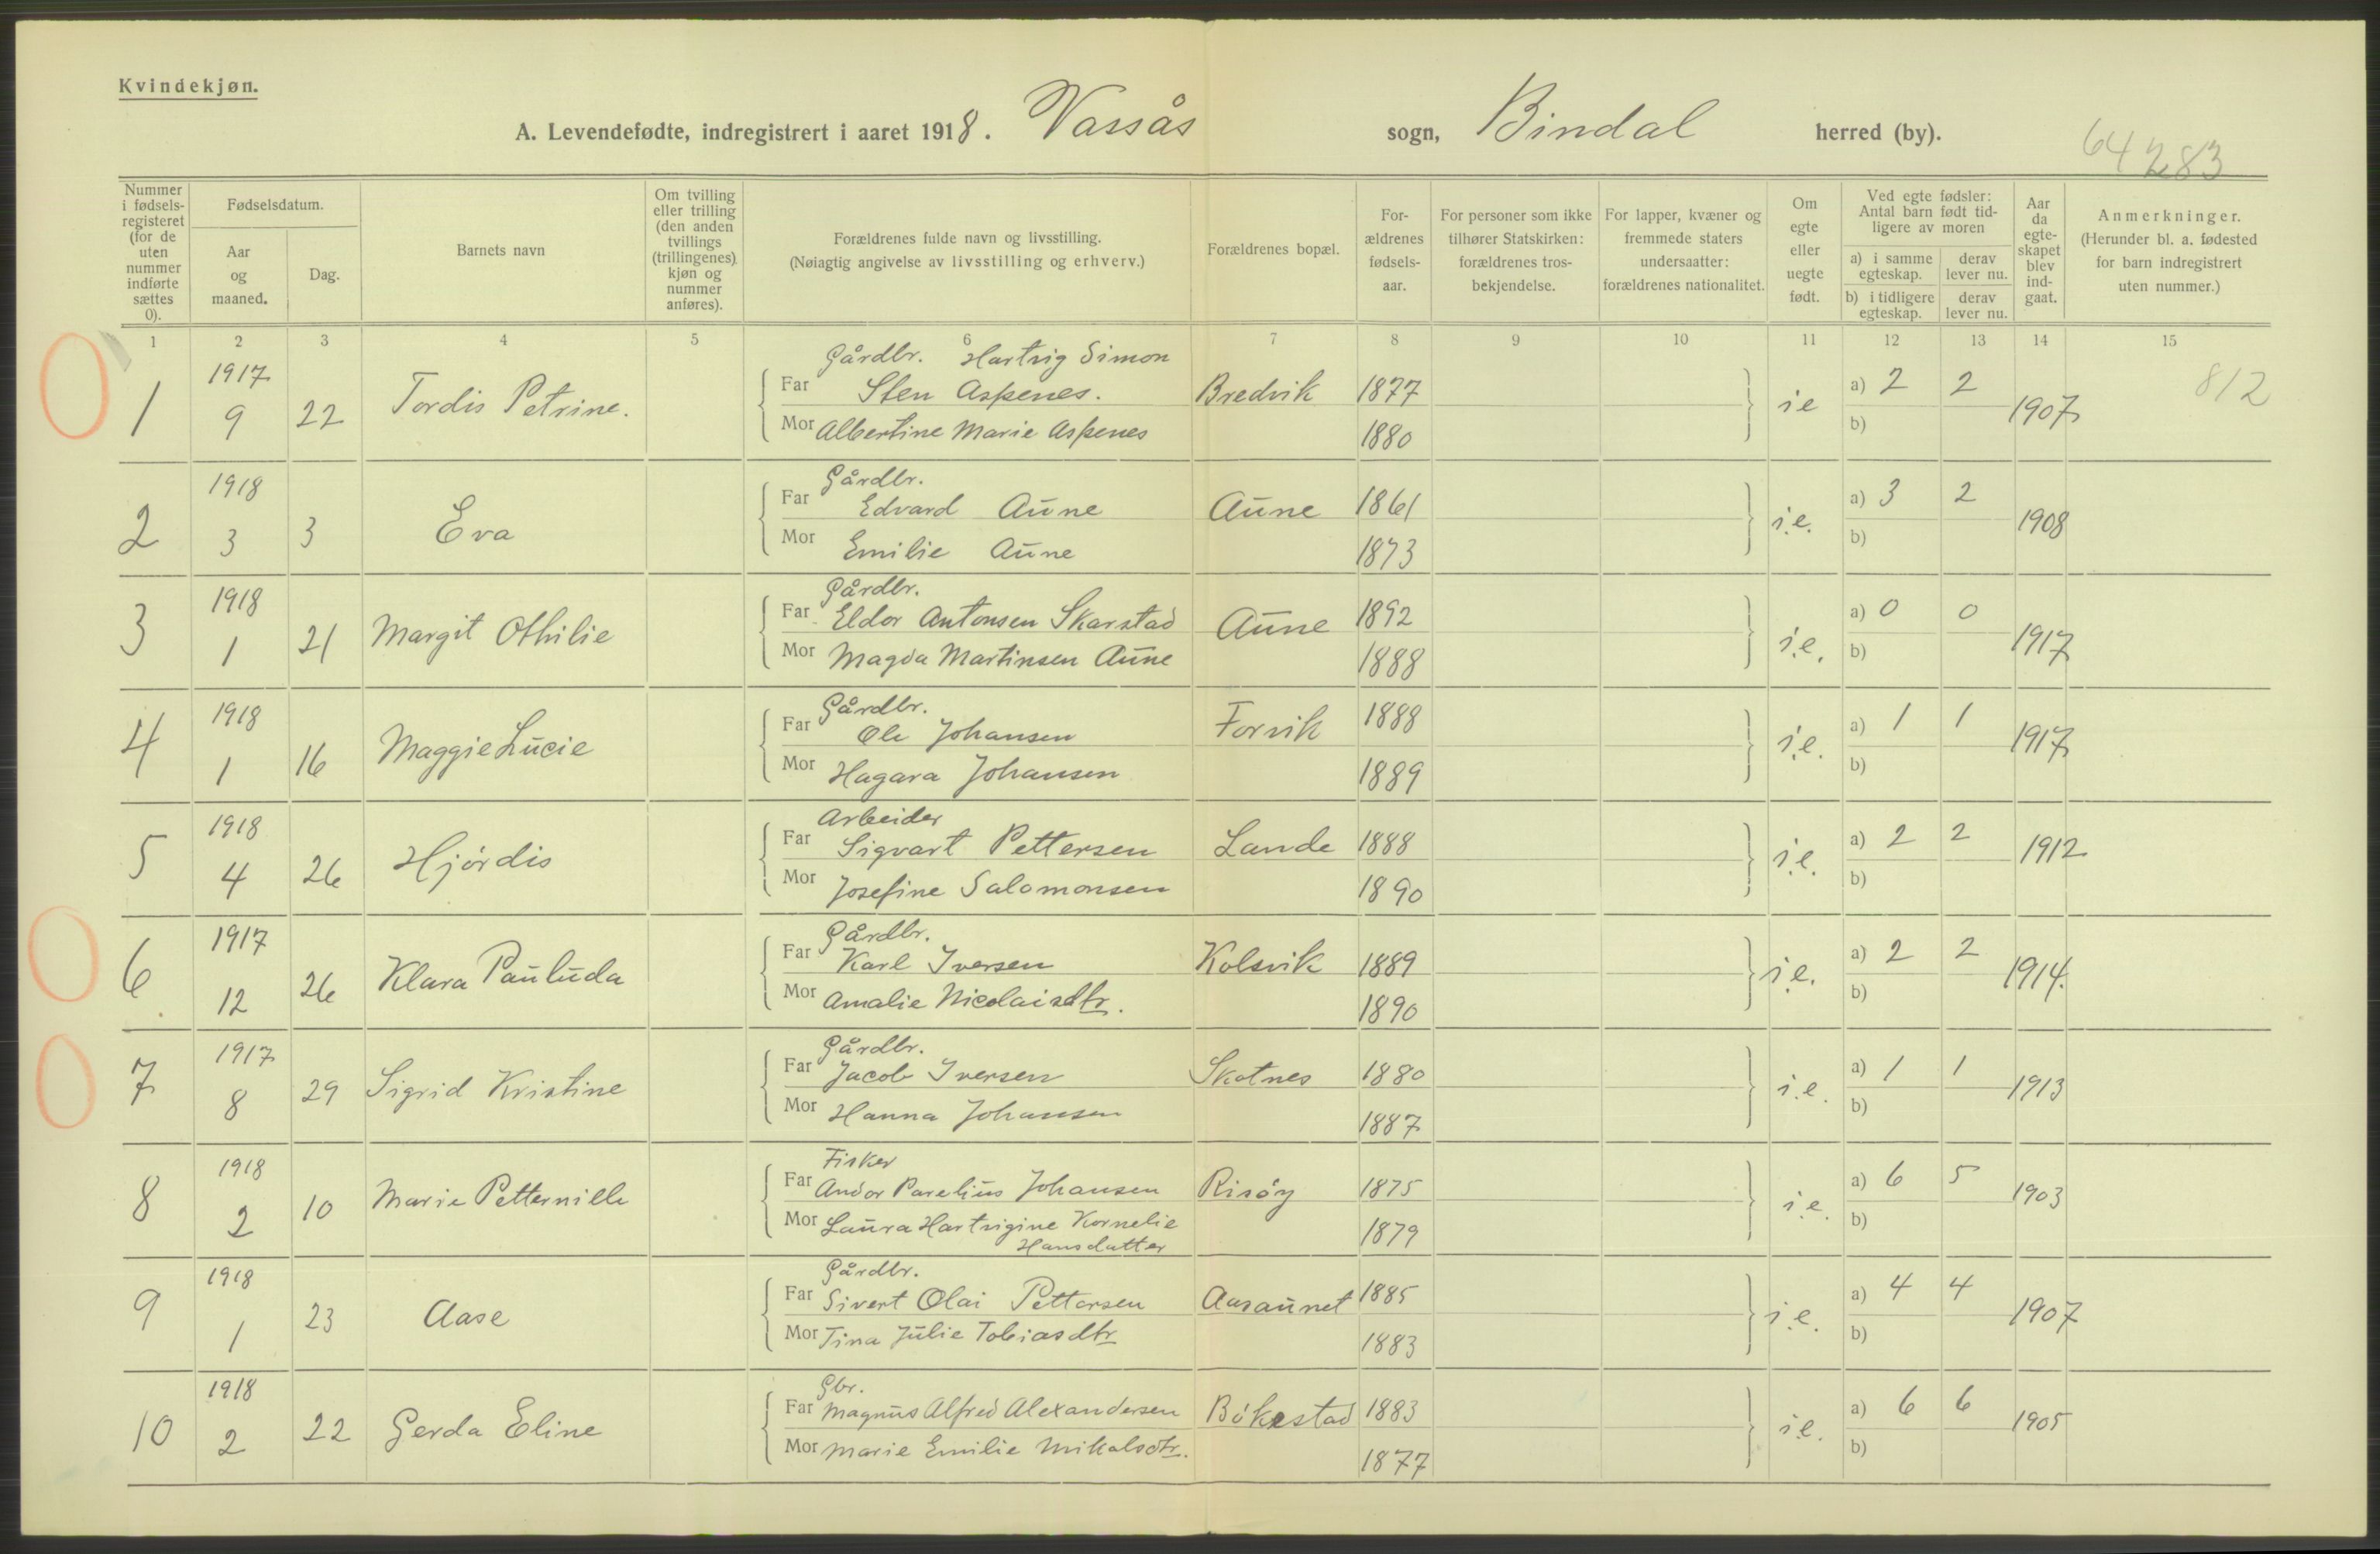 Kvindekjøn.
A. Levendefødte, indregistrert i aaret 1918. Vassås sogn, Bindal herred (by).
64283
Nummer i fødsels-registeret (for de uten nummer indførte sættes 0).
Fødselsdatum.
Aar og maaned.
Dag.
Barnets navn
Om tvilling eller trilling (den anden tvillings (trillingenes) kjøn og nummer anføres).
Forældrenes fulde navn og livsstilling.
(Nøiagtig angivelse av livsstilling og erhverv.)
Forældrenes bopæl.
For-ældrenes fødsels-aar.
For personer som ikke tilhører Statskirken: forældrenes tros-bekjendelse.
For lapper, kvæner og fremmede staters undersaatter: forældrenes nationalitet.
Om egte eller uegte født.
Ved egte fødsler: Antal barn født tid-ligere av moren
a) i samme egteskap.
derav lever nu.
b) i tidligere egteskap.
derav lever nu.
Aar da egte-skapet blev ind-gaat.
Anmerkninger.
(Herunder bl. a. fødested for barn indregistrert uten nummer.)
1 2 3 4 5 6 7 8 9 10 11 12 13 14 15
1917 Gårdbr. Hartvig Simon
1 9 22 Tordis Petrine. Far Sten Aspenes. Bredvik 1877 i e a) 2 2 1907 812
Mor Albertine Marie Aspenes 1880 b)
1918 Gårdbr.
2 3 3 Eva Far Edvard Aune Aune 1861 i.e. a) 3 2 1908
Mor Emilie Aune 1873 b)
1918 Gårdbr.
3 1 21 Margit Othilie Far Eldor Antonsen Skarstad Aune 1892 i.e. a) 0 0 1917
Mor Magda Martinsen Aune 1888 b)
1918 Gårdbr.
4 1 16 Maggie Lucie Far Ole Johansen Forvik 1888 i.e. a) 1 1 1917
Mor Hagara Johansen 1889 b)
1918 Arbeider
5 4 26 Hjørdis Far Sigvart Pettersen Lande 1888 i.e. a) 2 2 1912
Mor Josefine Salomonsen 1890 b)
1917 Gårdbr.
6 12 26 Klara Pauluda Far Karl Iversen Kolsvik 1889 i.e. a) 2 2 1914.
Mor Amalie Nicolaisdtr. 1890 b)
1917 Gårdbr.
7 8 29 Sigrid Kristine Far Jacob Iversen Skotnes 1880 i.e. a) 1 1 1913
Mor Hanna Johansen 1887 b)
1918 Fisker
8 2 10 Marie Petternille Far Andor Parelius Johansen Risøy 1875 i.e. a) 6 5 1903
Mor Laura Hartvigine Kornelie 1879 b)
Hansdatter
1918 Gårdbr.
9 1 23 Aase Far Sivert Olai Pettersen Aasaunet 1885 i.e. a) 4 4 1907
Mor Tina Julie Tobiasdtr 1883 b)
1918 Gbr.
10 2 22 Gerda Eline Far Magnus Alfred Alexandersen Bøkestad 1883 i.e. a) 6 6 1905
Mor Marie Emilie Mikalsdtr. 1877 b)